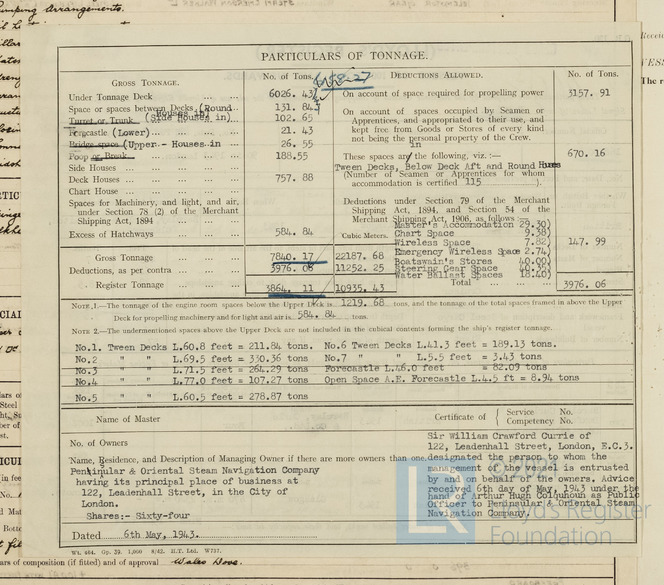 PARTICULARS OF TONNAGE.
GROSS TONNAGE.
No. of Tons.
Under Tonnage Deck 6026. 43
Space or spaces between Decks (Round Houses in) 131. 84
Turret or Trunk (Side Houses in) 102. 65
Forecastle (Lower) 21. 43
Bridge space (Upper - Houses in 26. 55
Poop or Break 188.55
Side Houses
Deck Houses 757. 88
Chart House
Spaces for Machinery, and light, and air,
under Section 78 (2) of the Merchant
Shipping Act, 1894
Excess of Hatchways 584. 84
Cubic Meters.
Gross Tonnage 7840. 17 22187. 68
Deductions, as per contra 3976. 06 11252. 25
Register Tonnage 3864. 11 10935. 43
DEDUCTIONS ALLOWED.
No. of Tons.
On account of space required for propelling power 3157. 91
On account of spaces occupied by Seamen or
Apprentices, and appropriated to their use, and
kept free from Goods or Stores of every kind
not being the personal property of the Crew.
in
These spaces are the following, viz.:— 670. 16
Tween Decks, Below Deck Aft and Round Houses
(Number of Seamen or Apprentices for whom
accommodation is certified 115 ).
Deductions under Section 79 of the Merchant
Shipping Act, 1894, and Section 54 of the
Merchant Shipping Act, 1906, as follows—
Master's Accommodation 29.30)
Chart Space 9.38)
Wireless Space 7.82) 147. 99
Emergency Wireless Space 2.74)
Boatswain's Stores 40.00)
Steering Gear Space 40.35)
Water Ballast Spaces 18.40)
Total 3976. 06
NOTE 1.—The tonnage of the engine room spaces below the Upper Deck is 1219. 68 tons, and the tonnage of the total spaces framed in above the Upper
Deck for propelling machinery and for light and air is 584. 84 tons.
NOTE 2.—The undermentioned spaces above the Upper Deck are not included in the cubical contents forming the ship's register tonnage.
No.1. Tween Decks L.60.8 feet = 211.84 tons. No.6 Tween Decks L.41.3 feet = 189.13 tons.
No.2 " " L.69.5 feet = 330.36 tons No.7 " " L.5.5 feet = 3.43 tons
No.3 " " L.71.5 feet = 264.29 tons Forecastle L.46.0 feet = 82.09 tons
No.4 " " L.77.0 feet = 107.27 tons Open Space A.E. Forecastle L.4.5 ft = 8.94 tons
No.5 " " L.60.5 feet = 278.87 tons
Name of Master
Certificate of { Service No.
Competency No.
No. of Owners
Name, Residence, and Description of Managing Owner if there are more owners than one.
Peninsular & Oriental Steam Navigation Company
having its principal place of business at
122, Leadenhall Street, in the City of
London.
Shares:- Sixty-four
Sir William Crawford Currie of
122, Leadenhall Street, London, E.C.3.
designated the person to whom the
management of the vessel is entrusted
by and on behalf of the owners. Advice
received 6th day of May, 1943 under the
hand of Arthur Hugh Colquhoun as Public
Officer to Peninsular & Oriental Steam
Navigation Company.
Dated 6th May, 1943.
Wt. 464. Op. 39. 1,000 8/42. H.T. Ltd. W757.
LR
Lloyds Register
Foundation